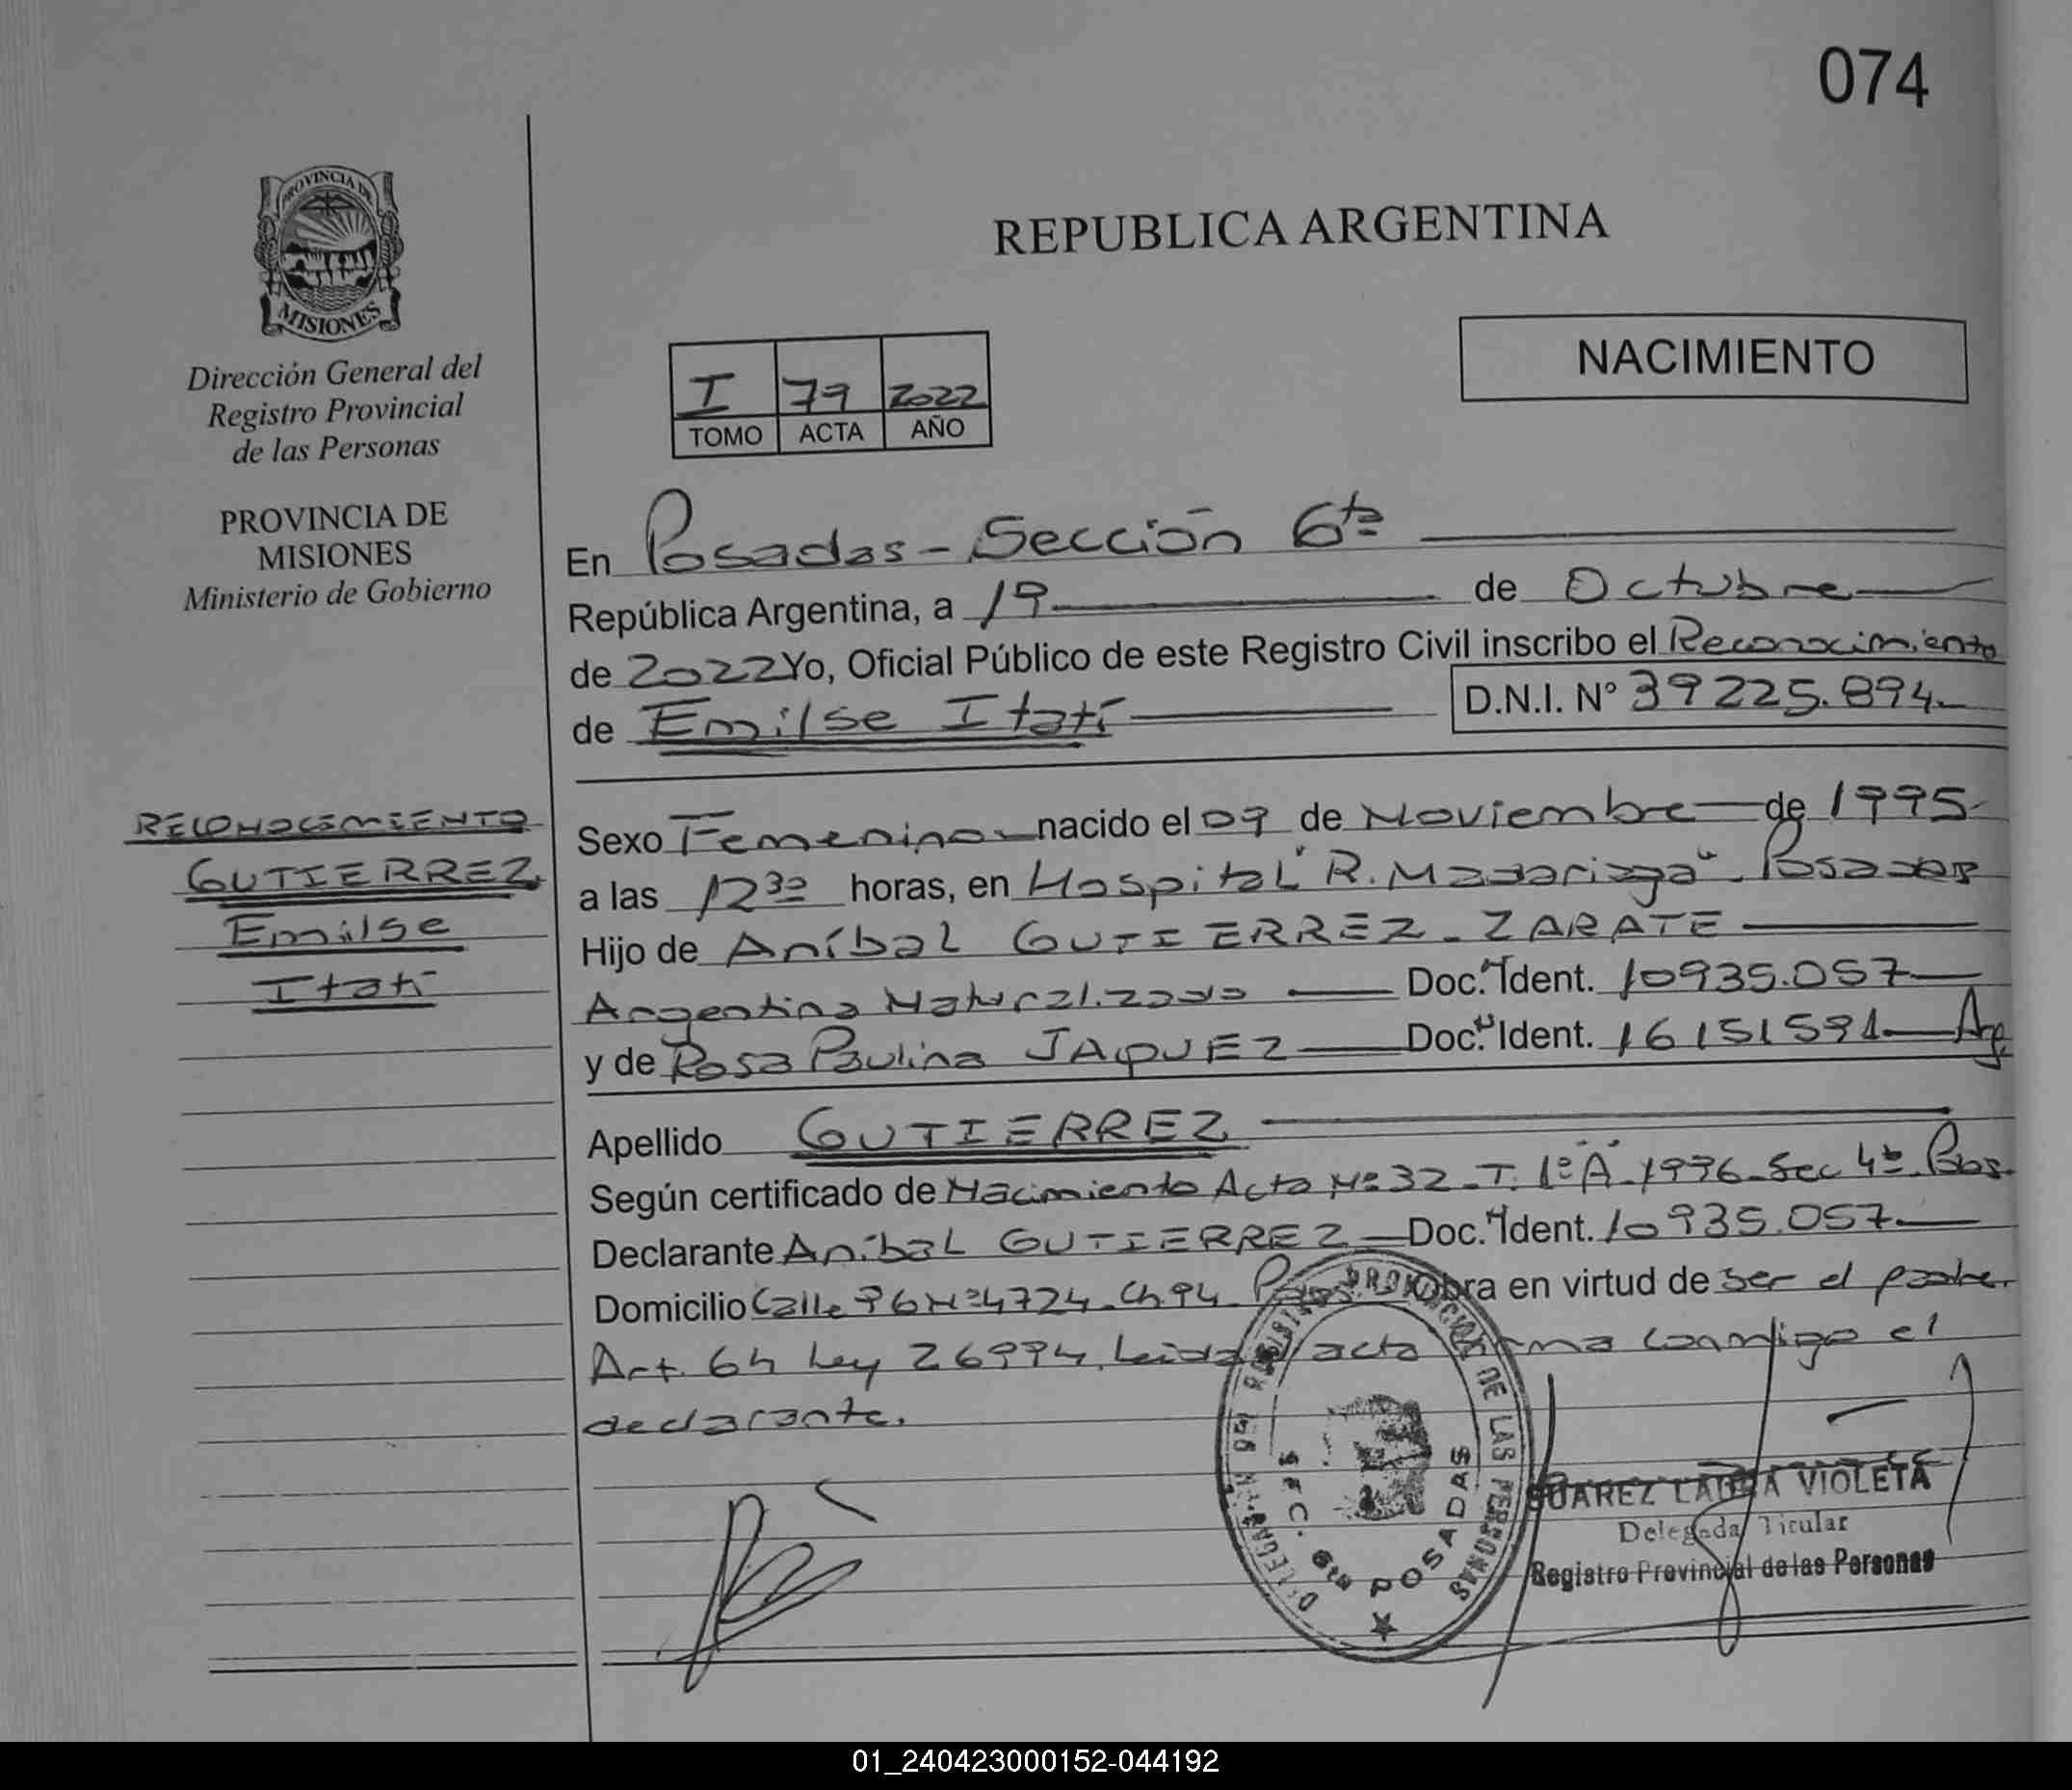 074
PROVINCIA DE
MISIONES
Dirección General del
Registro Provincial
de las Personas
PROVINCIA DE
MISIONES
Ministerio de Gobierno
REPUBLICA ARGENTINA
NACIMIENTO
I 79 2022
TOMO ACTA AÑO
En Posadas - Sección 6ta
República Argentina, a 19 de Octubre
de 2022 Yo, Oficial Público de este Registro Civil inscribo el Reconocimiento
de Emilse Itatí D.N.I. N° 39225.894
RECONOCIMIENTO
GUTIERREZ
Emilse
Itatí
Sexo Femenino nacido el 09 de Noviembre de 1995
a las 12 30 horas, en Hospital "R. Madariaga" - Posadas
Hijo de Aníbal GUTIERREZ - ZARATE
Argentino Naturalizado Doc. Ident. 10935.057
y de Rosa Paulina JAQUEZ Doc. Ident. 16151591 Arg.
Apellido GUTIERREZ
Según certificado de Nacimiento Acta Nº 32 - T. 1º "A" - 1996 - Sec 4ta Pdas.
Declarante Aníbal GUTIERREZ Doc. Ident. 10935.057
Domicilio Calle 96 Nº 4724 - Ch 94 Obra en virtud de ser el padre.
Art. 64 Ley 26994. Leida el acta firma conmigo el
declarante.
SEC. 6ta POSADAS
SUAREZ LAURA VIOLETA
Delegada Titular
Registro Provincial de las Personas
01_240423000152-044192